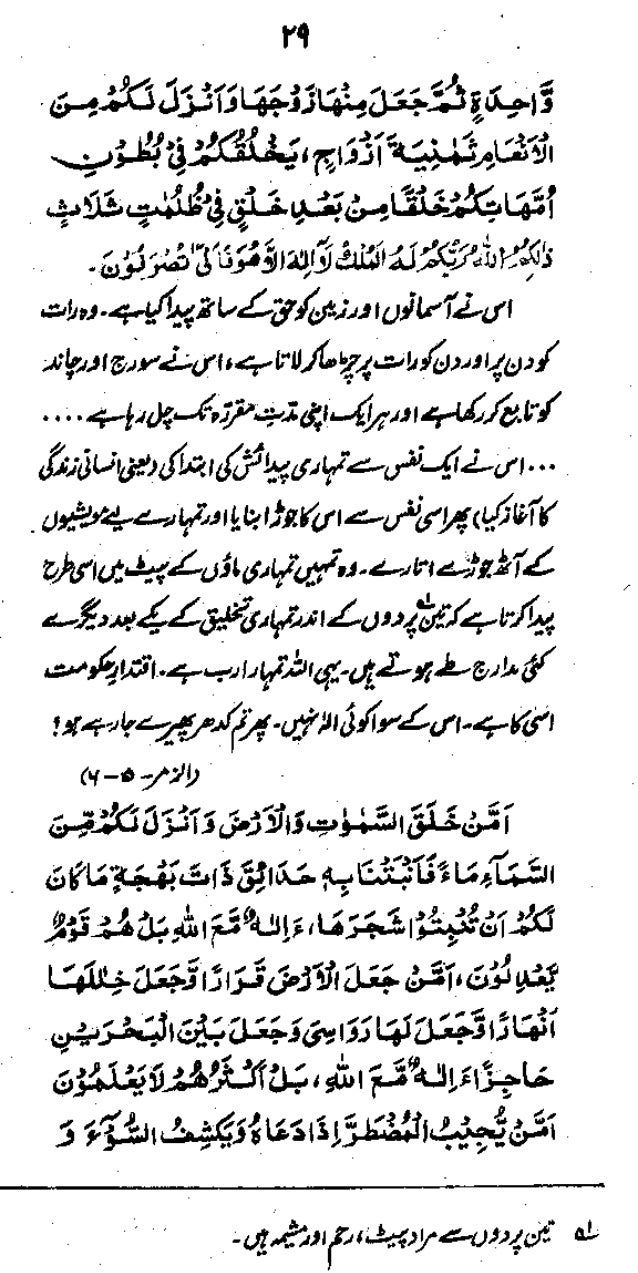 ۲۹
وَّاحِدَةٍ ثُمَّ جَعَلَ مِنْهَا زَوْجَهَا وَاَنْزَلَ لَكُمْ مِنَ
الْاَنْعَامِ ثَمٰنِيَةَ اَزْوَاجٍ، يَخْلُقُكُمْ فِيْ بُطُوْنِ
اُمَّهَاتِكُمْ خَلْقًا مِنْ بَعْدِ خَلْقٍ فِيْ ظُلُمٰتٍ ثَلَاثٍ
ذَالِكُمُ اللّٰهُ رَبُّكُمْ لَهُ الْمُلْكُ لَآ اِلٰهَ اِلَّا هُوَ فَاَنّٰى تُصْرَفُوْنَ۔
اس نے آسمانوں اور زمین کو حق کے ساتھ پیدا کیا ہے۔ وہ رات
کو دن پر اور دن کو رات پر چڑھا کر لاتا ہے، اس نے سورج اور چاند
کو تابع کر رکھا ہے اور ہر ایک اپنی مدتِ مقررہ تک چل رہا ہے ....
... اس نے ایک نفس سے تمہاری پیدائش کی ابتدا کی (یعنی انسانی زندگی
کا آغاز کیا) پھر اسی نفس سے اس کا جوڑا بنایا اور تمہارے لیے مویشیوں
کے آٹھ جوڑے اتارے۔ وہ تمہیں تمہاری ماؤں کے پیٹ میں اسی طرح
پیدا کرتا ہے کہ تین لہ پردوں کے اندر تمہاری تخلیق کے یکے بعد دیگرے
کئی مدارج طے ہوتے ہیں۔ یہی اللہ تمہارا رب ہے۔ اقتدارِ حکومت
اسی کا ہے۔ اس کے سوا کوئی الٰہ نہیں۔ پھر تم کدھر پھیرے جا رہے ہو؟
(الزمر۔ ۵-۶)
اَمَّنْ خَلَقَ السَّمٰوٰتِ وَالْاَرْضَ وَاَنْزَلَ لَكُمْ مِّنَ
السَّمَآءِ مَاءً فَاَنْبَتْنَا بِهٖ حَدَائِقَ ذَاتَ بَهْجَةٍ مَا كَانَ
لَكُمْ اَنْ تُنْبِتُوْا شَجَرَهَا، ءَاِلٰهٌ مَّعَ اللّٰهِ بَلْ هُمْ قَوْمٌ
يَّعْدِلُوْنَ، اَمَّنْ جَعَلَ الْاَرْضَ قَرَارًا وَّجَعَلَ خِلٰلَهَا
اَنْهَارًا وَّجَعَلَ لَهَا رَوَاسِيَ وَجَعَلَ بَيْنَ الْبَحْرَيْنِ
حَاجِزًا ءَاِلٰهٌ مَّعَ اللّٰهِ، بَلْ اَكْثَرُهُمْ لَا يَعْلَمُوْنَ
اَمَّنْ يُّجِيْبُ الْمُضْطَرَّ اِذَا دَعَاهُ وَيَكْشِفُ السُّوْٓءَ وَ
لہ تین پردوں سے مراد پیٹ، رحم اور مشیمہ ہیں۔